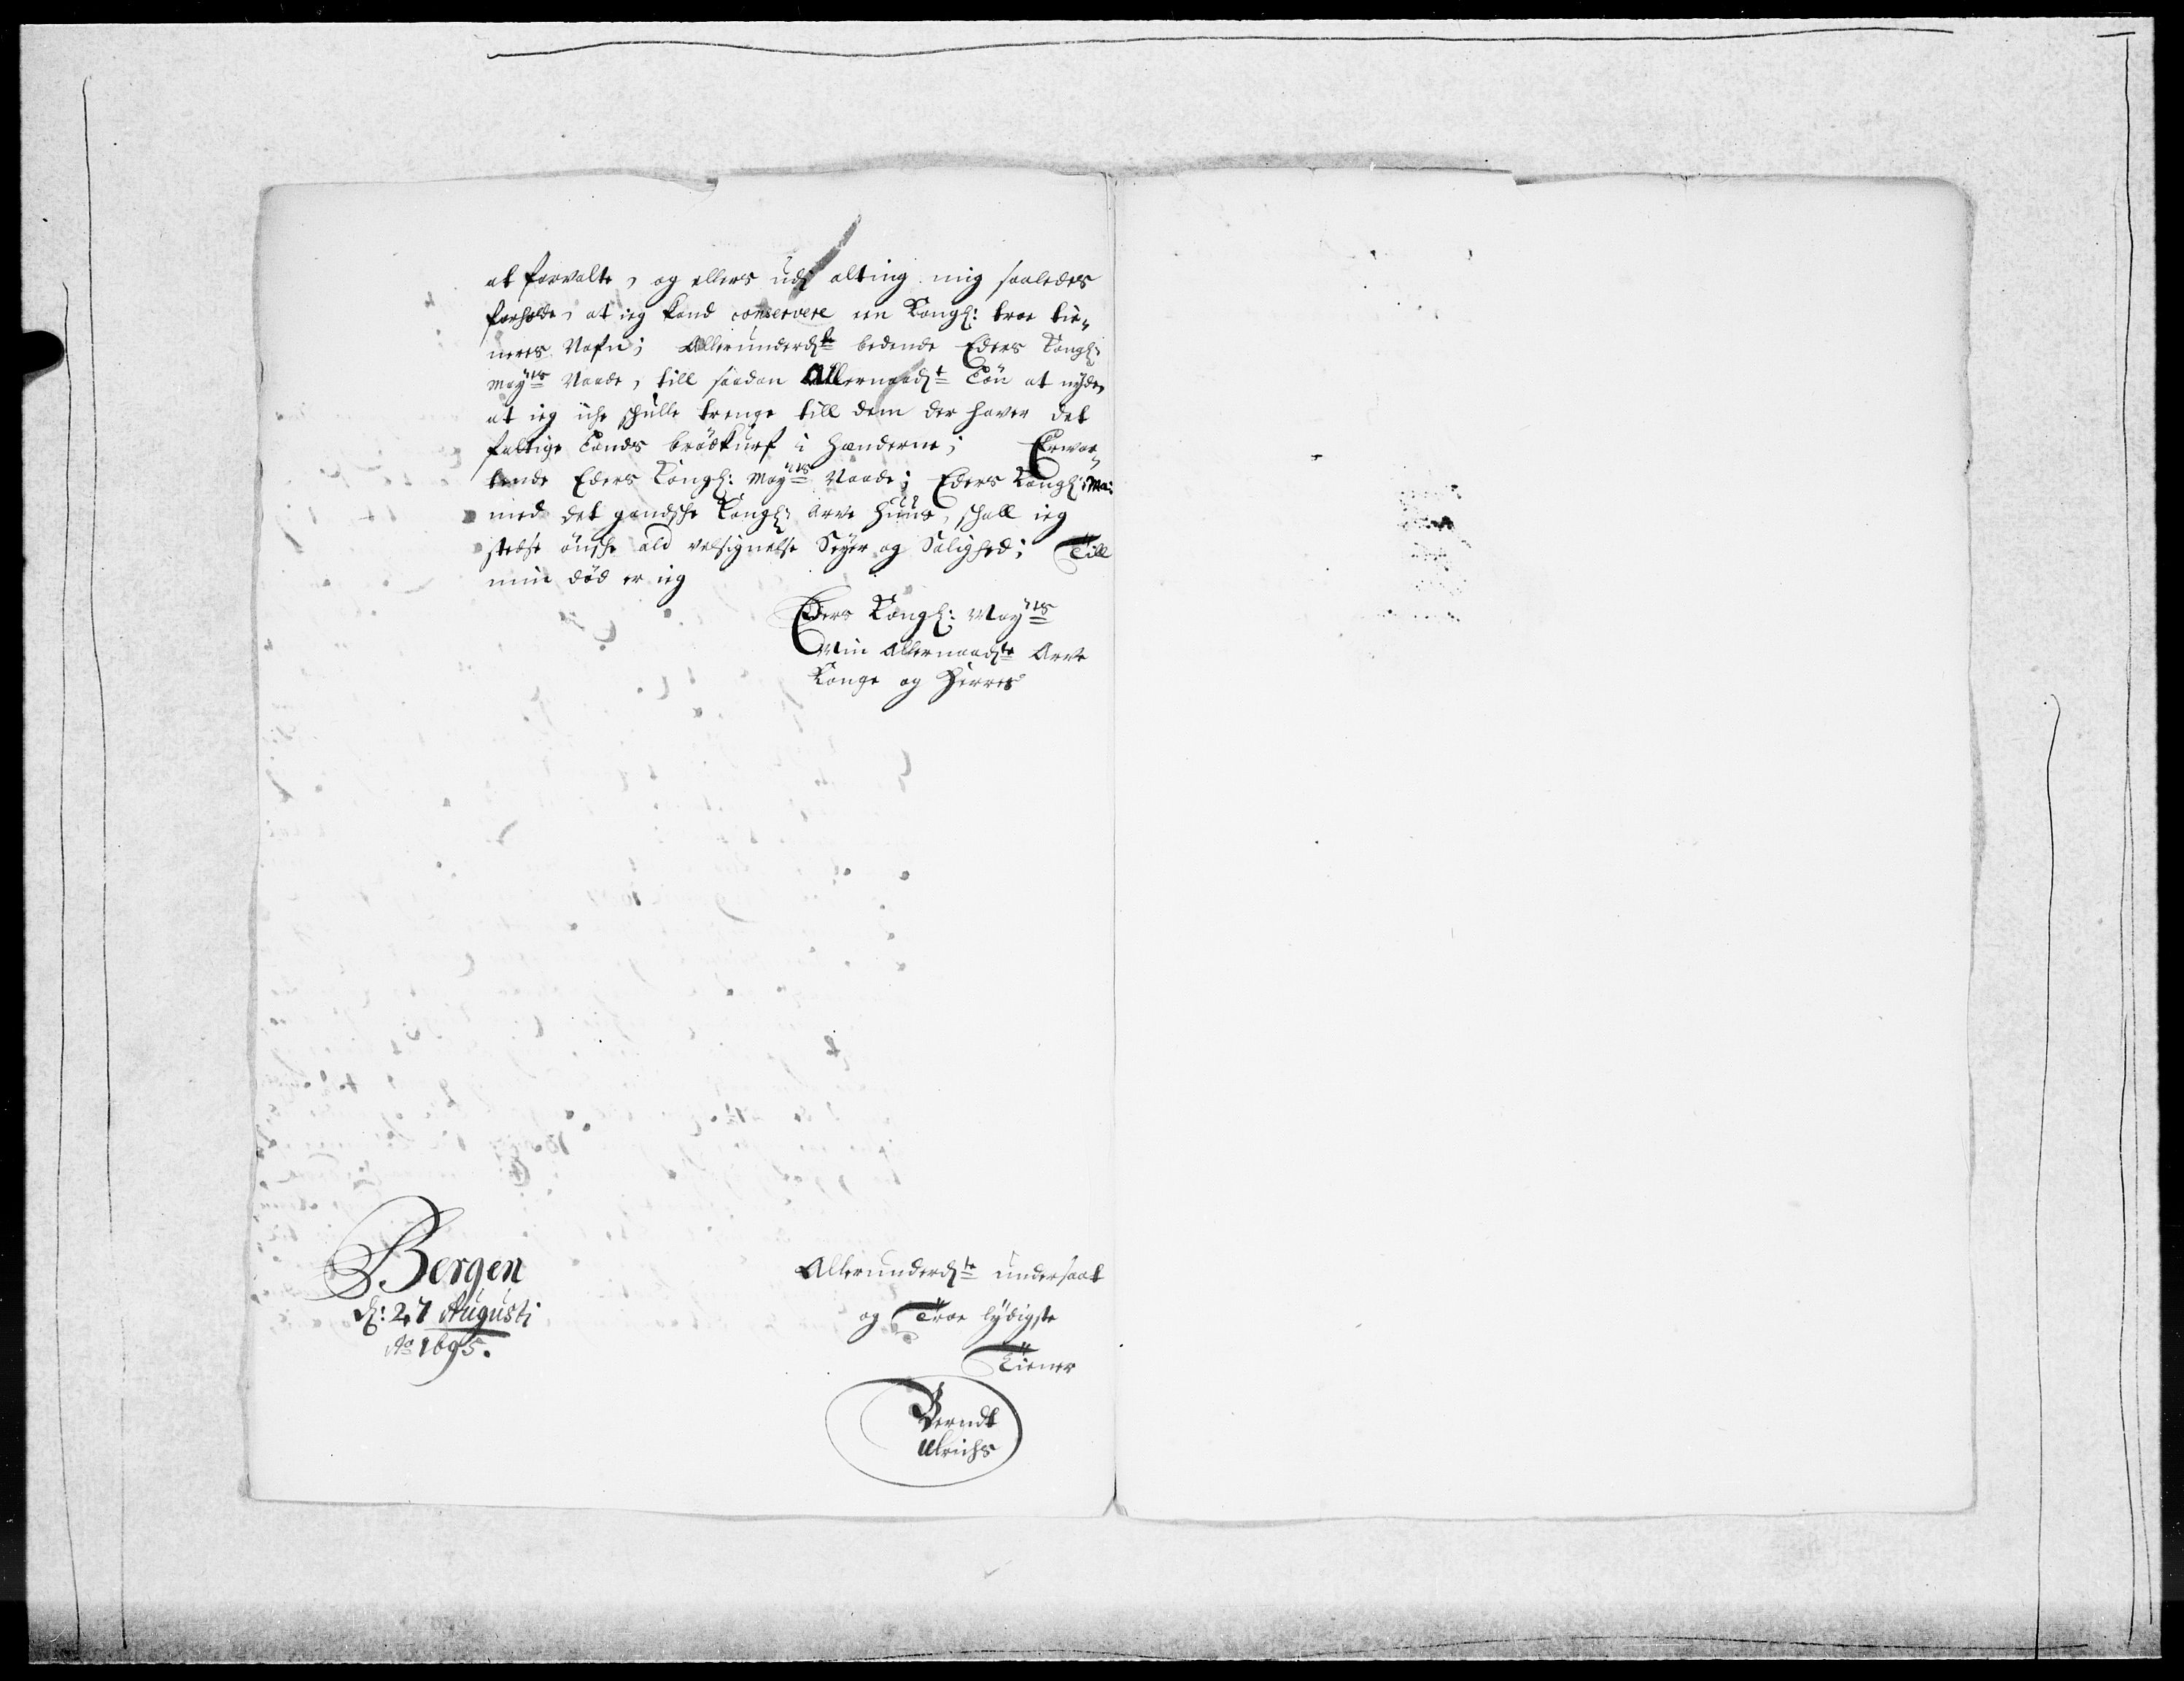 at forvalte, og ellers udj alting mig saaledes
forholde, at ieg kand conservere een Kongl: troe tie¬
neres Nafn; Allerunderdste bedende Eders Kongl:
Mayts Naade, till saadan Allernaadst Løn at nyde,
at ieg iche schulle trenge till dem der haver det
fattige Lands brødkurf i Hænderne; Erwar¬
tende Eders Kongl: Mayts Naade; Eders Kongl: Ma:
med det gandsche Kongl: Arve Huus, schall ieg
stedse ønsche ald velsignelse Seyer og Salighed; Till
min død er ieg
Eders Kongl: Mayts
Min Allernaadste Arve
Konge og Herres
Bergen
d: 27 Augusti
Ao 1695.
Allerunderdste undersaat
og Troe lydigste
Tiener
Berndt
Ulrichs